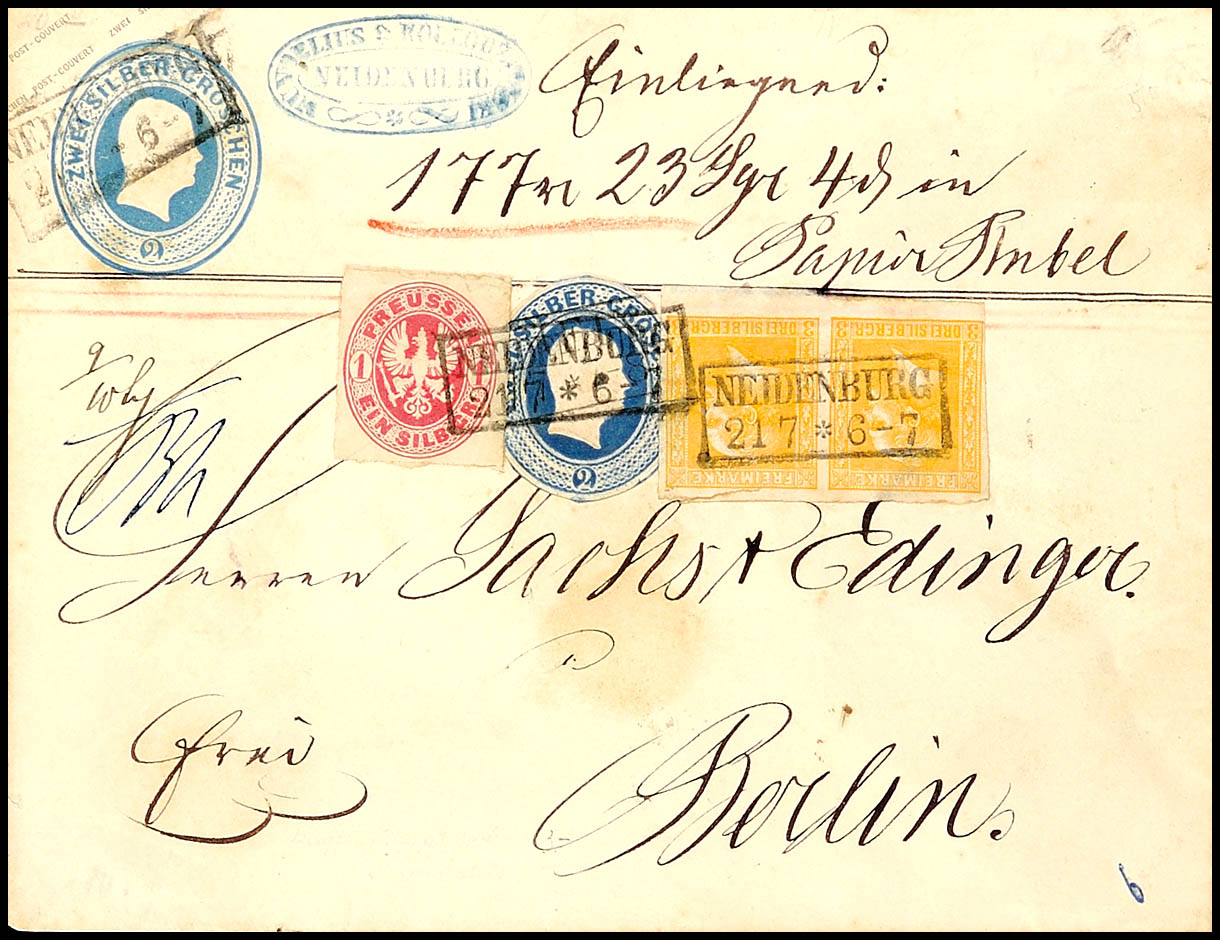 POST-COUVERT ZWEI SI
POST-COUVERT
ZWEI·SILBER·GROSCHEN
2
6
NEIDENBURG
Einliegend:
177 rt 23 Sgr 4 d in
Papier Rubel
PREUSSEN
1 1
EIN SILBERGR
SILBER·GROSCHEN
2
NEIDENBURG
21 7 * 6-
3 DREI SILBERGR. 3
FREIMARKE
3 DREI SILBERGR. 3
FREIMARKE
NEIDENBURG
21 7 * 6-7
Herren Sachs & Edinger.
Frei
Berlin.
6